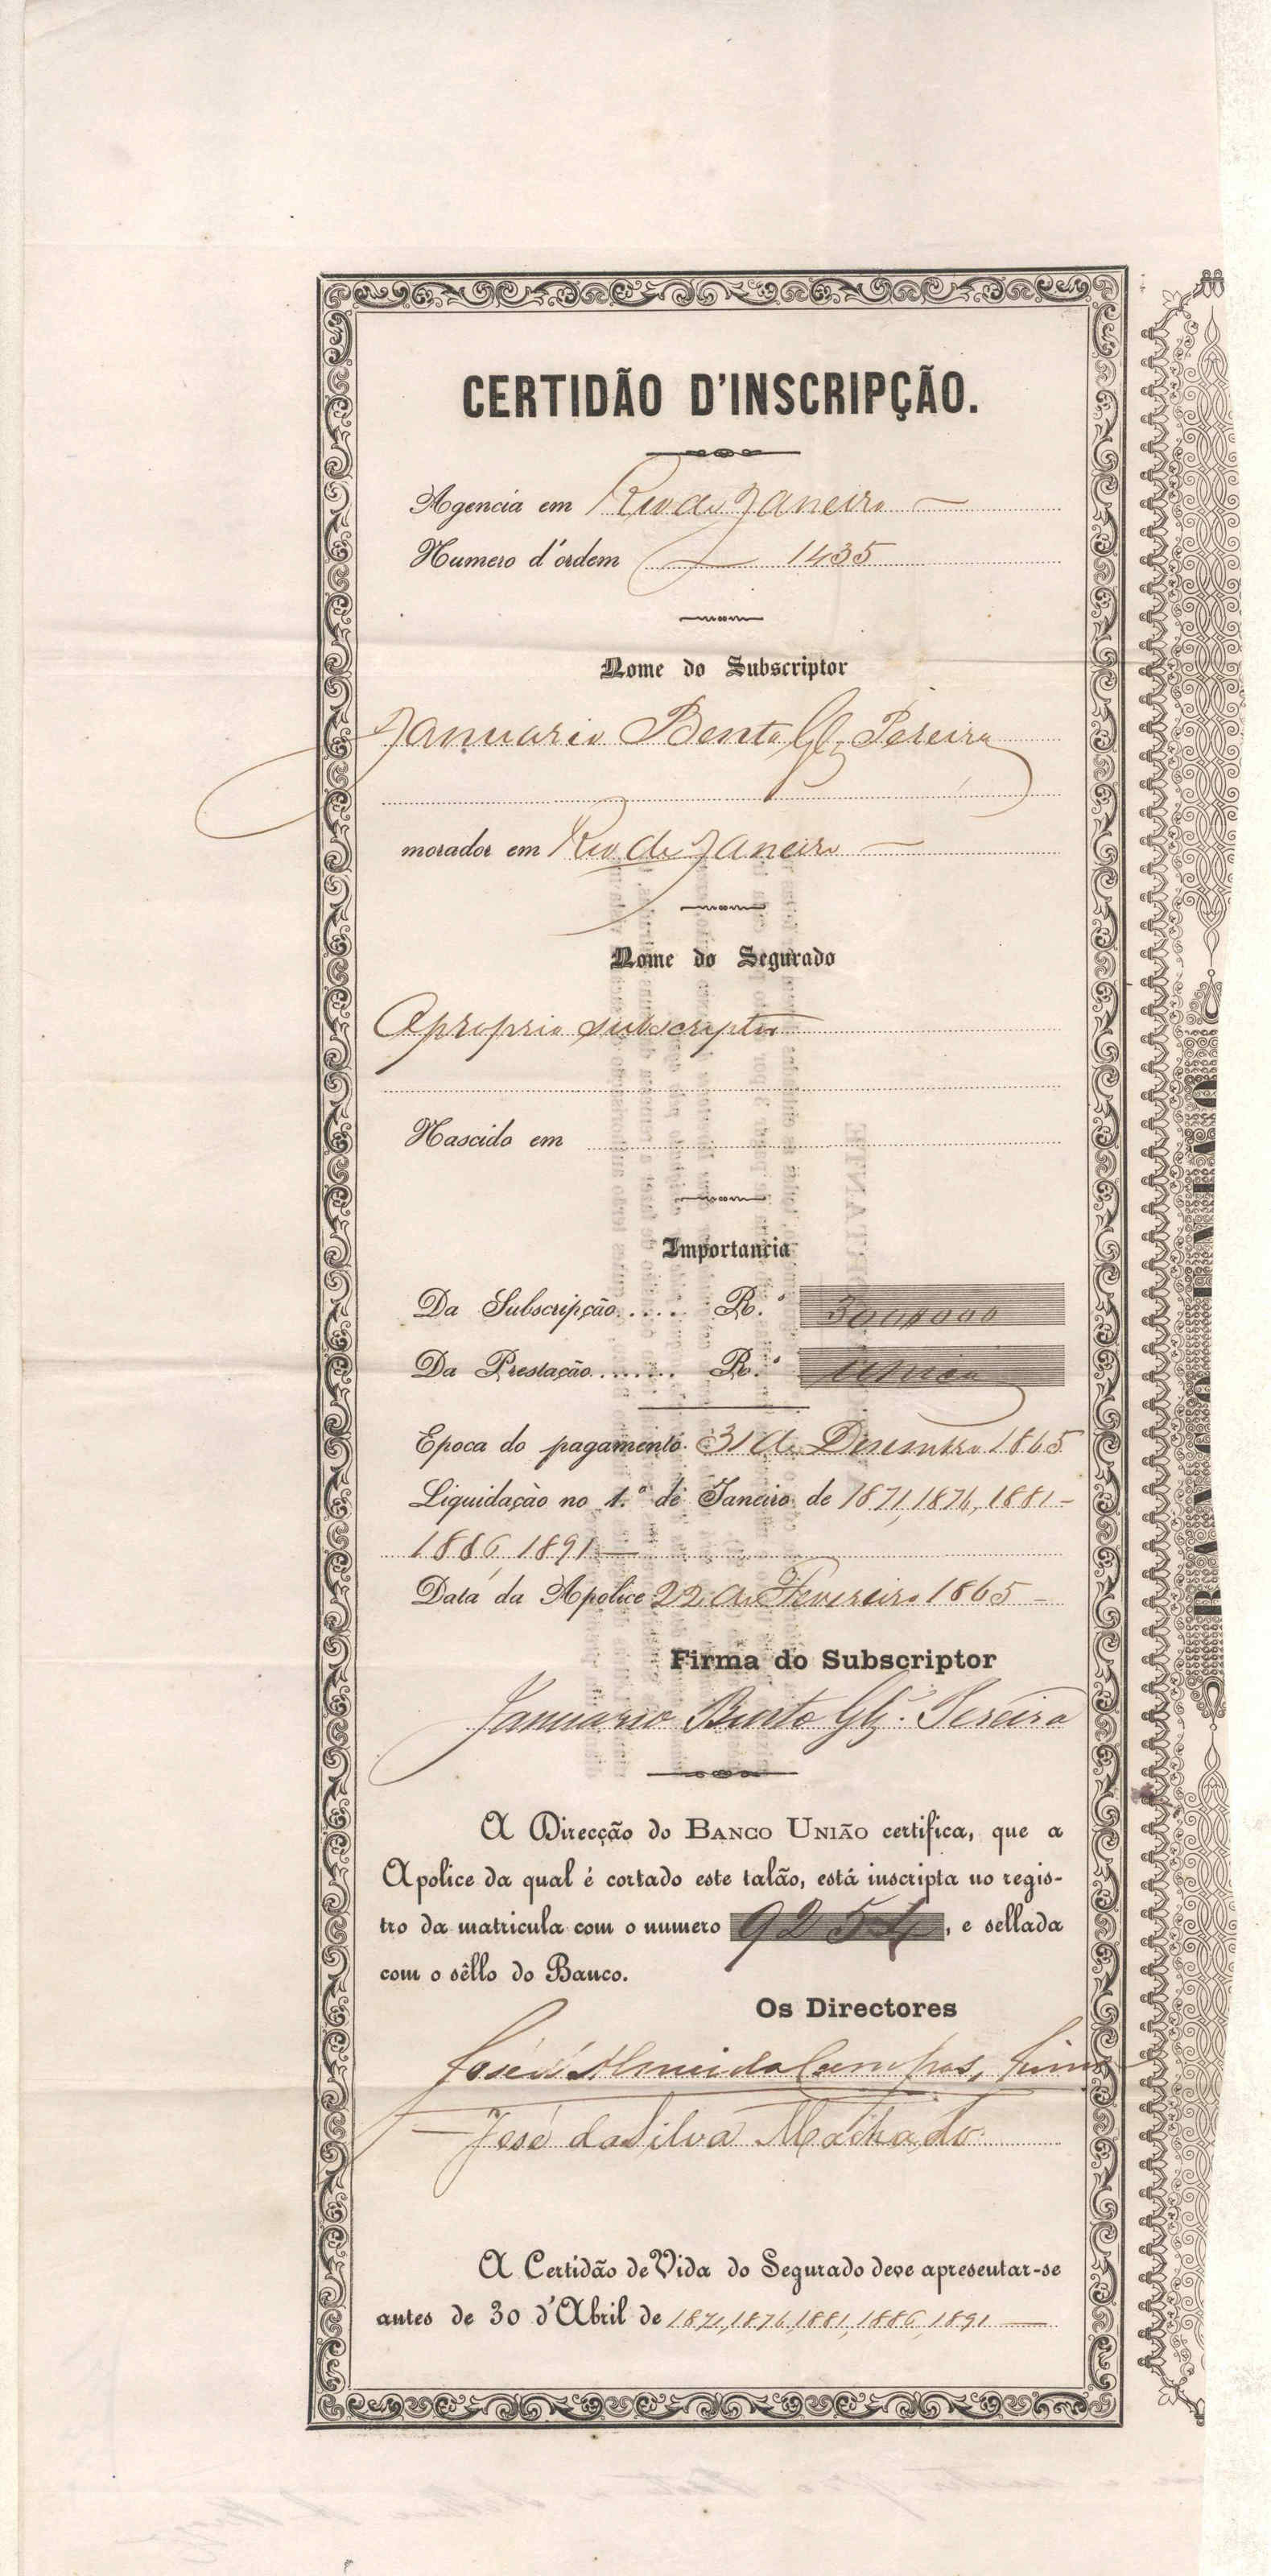 CERTIDÃO D'INSCRIPÇÃO.
Agencia em Rio de Janeiro
Numero d'ordem 1435
Nome do Subscriptor
Januario Bento Glz Pereira
morador em Rio de Janeiro
Nome do Segurado
O proprio subscriptor
Nascido em
Importancia
Da Subscripção..... R.s 300$000
Da Prestação....... R.s unica
Epoca do pagamento 31 de Desembro 1865
Liquidação no 1.º de Janeiro de 1871, 1876, 1881
1886 1891
Data da Apolice 22 de Fevereiro 1865
Firma do Subscriptor
Januario Bento Glz. Pereira
A Direcção do BANCO UNIÃO certifica, que a
Apolice da qual é cortado este talão, está inscripta no regis-
tro da matricula com o numero 9254, e sellada
com o sêllo do Banco.
Os Directores
José d'Almeida Campos, Junior
José da Silva Machado
A Certidão de Vida do Segurado deve apresentar-se
antes de 30 d'Abril de 1871, 1876, 1881, 1886, 1891